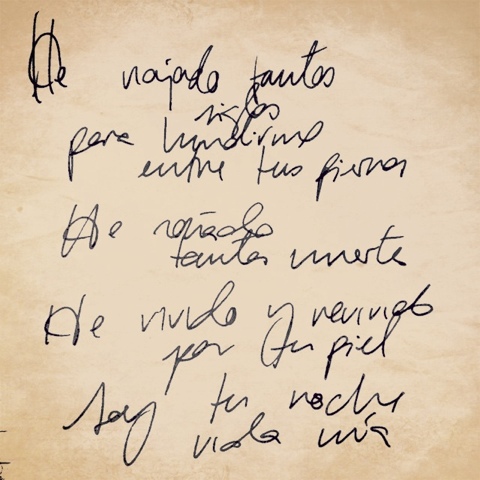 He viajado tantos
siglos
para hundirme
entre tus piernas
He soñado
tantas muertes
He vivido y revivido
por tu piel
Soy tu noche
viola mía